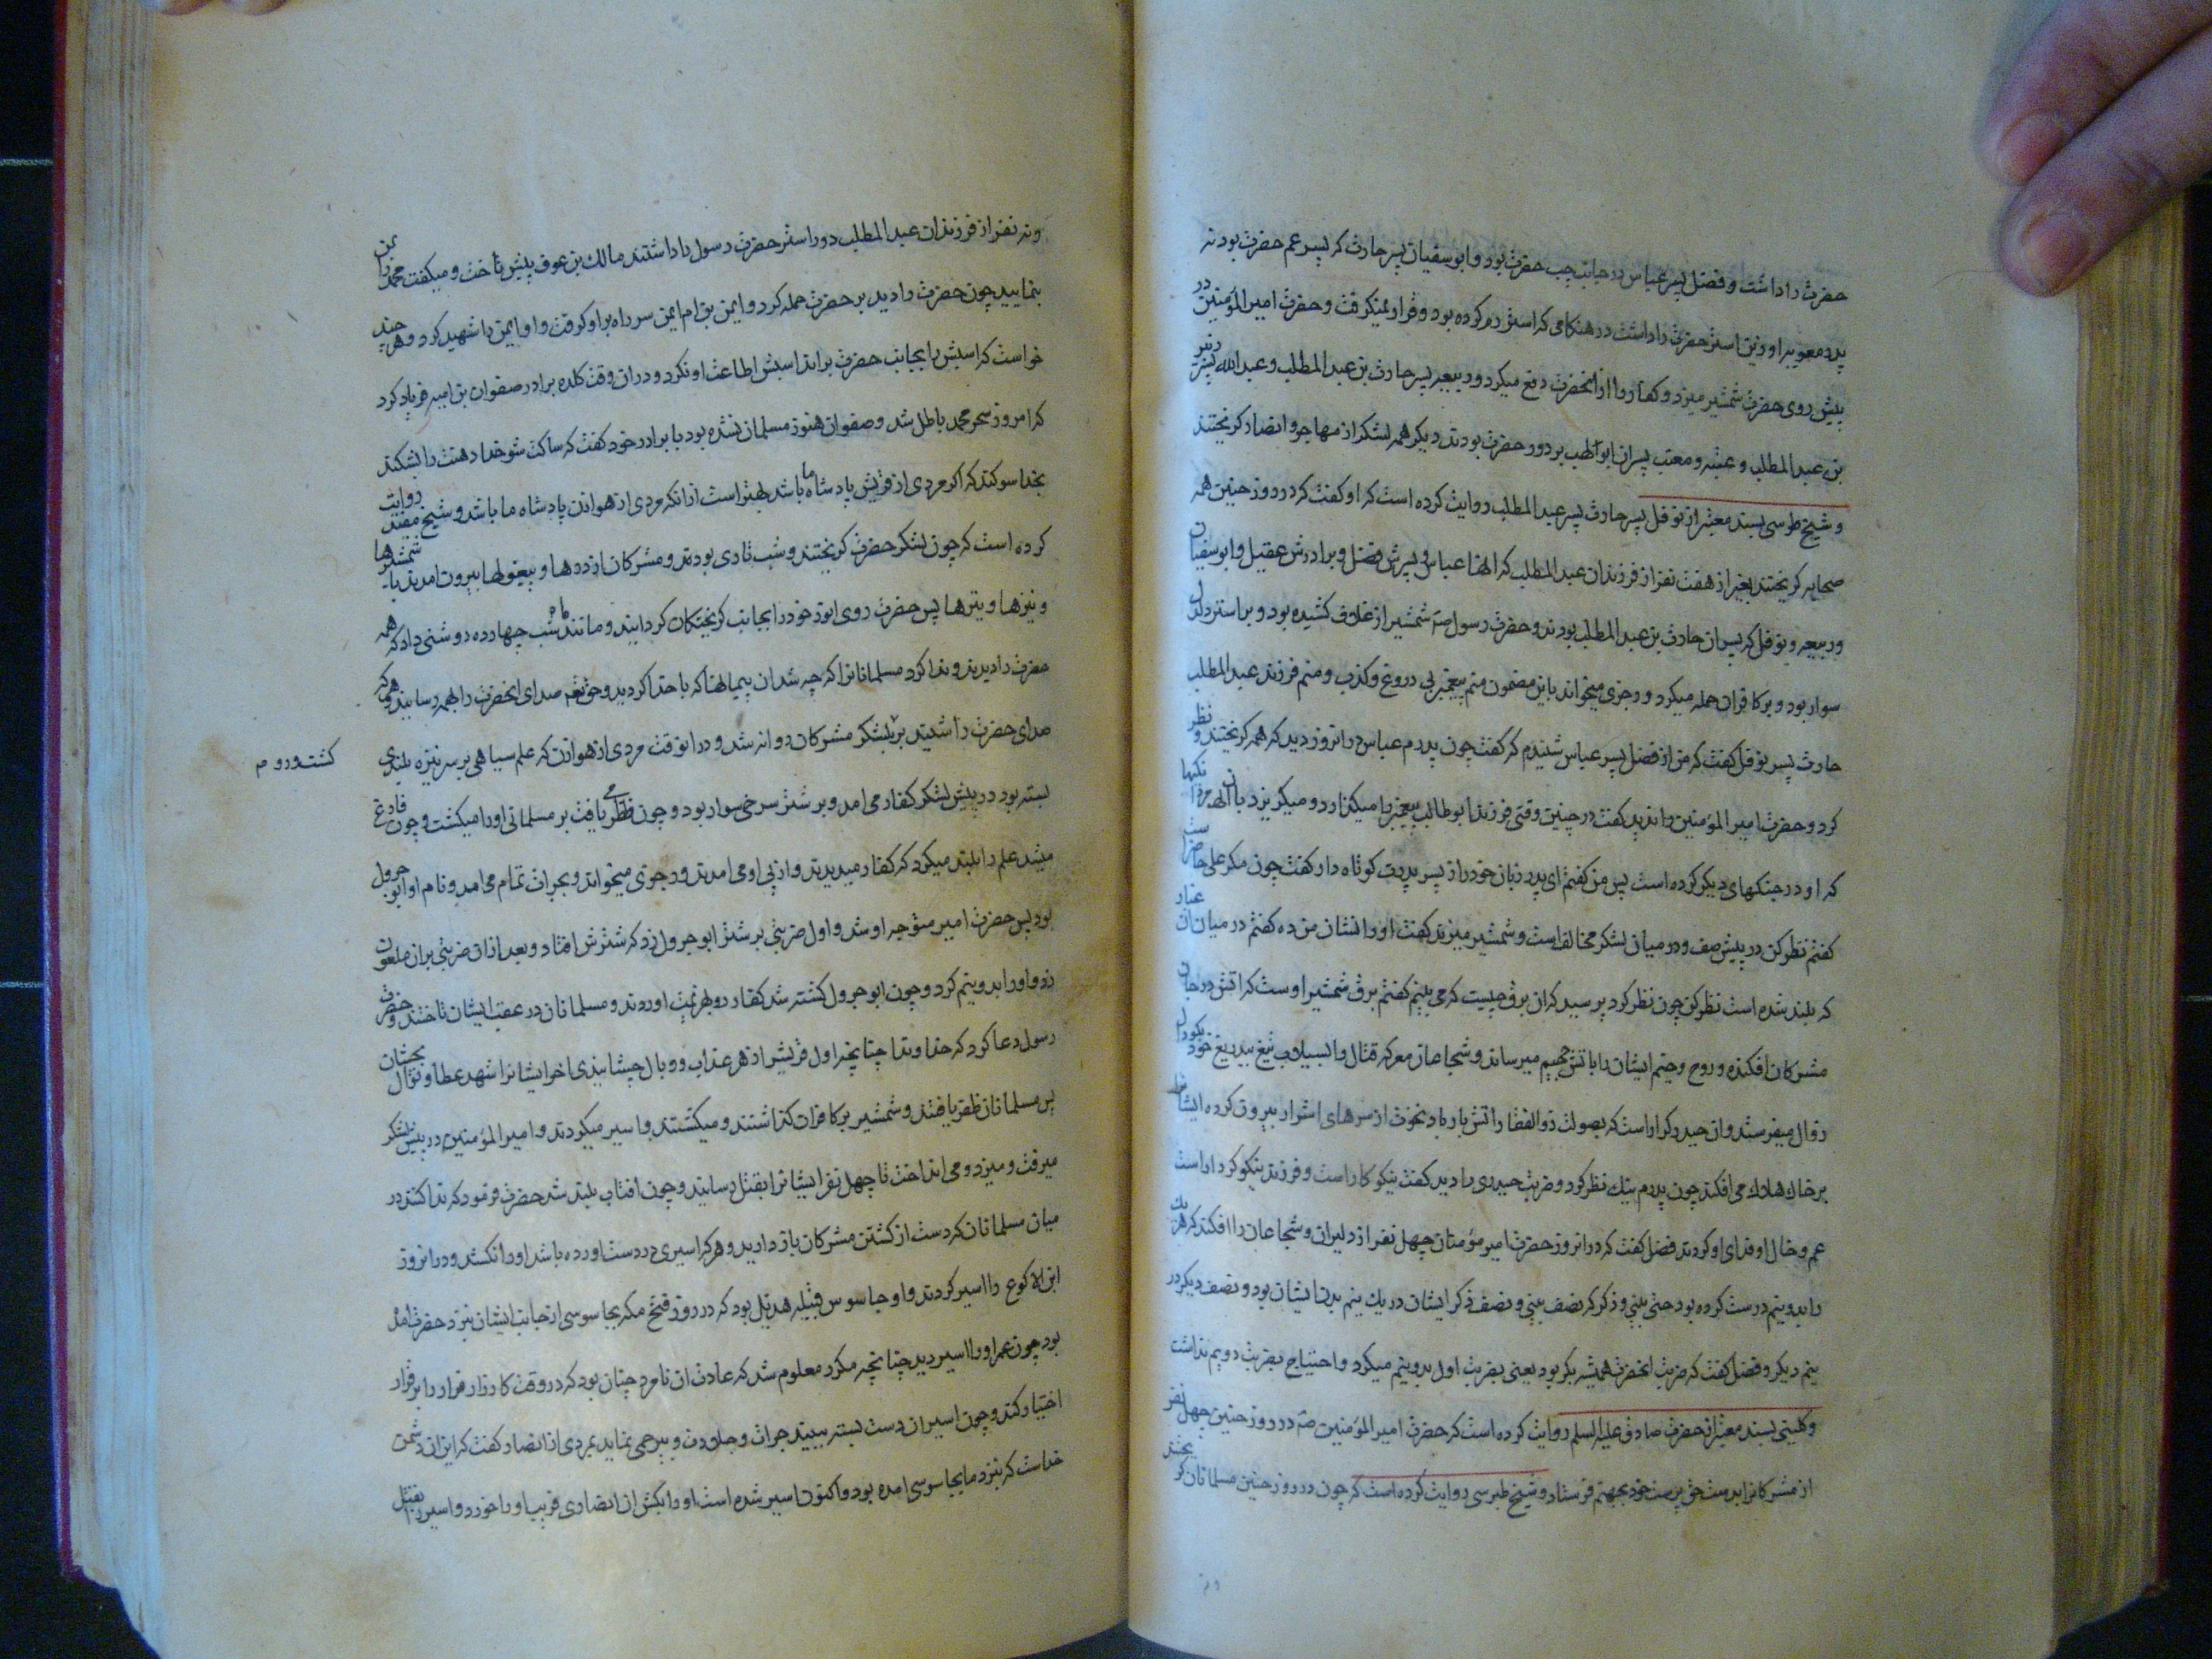 حضرت را داشت و فضل پسر عباس در جانب چپ حضرت بود و ابوسفیان پسر حارث که پسر عم حضرت بود نه
پدر معویه او زین استر حضرت را داشت در هنکامی که استر رم کرده بود و قرار نمیکرفت و حضرت امیر المؤمنین در
پیش روی حضرت شمشیر میزد و کفار را از آنحضرت دفع میکرد و ربیعه پسر حارث بن عبد المطلب و عبد الله پسر زبیر
بن عبد المطلب و عتبه و معتب پسران ابولهب بر دور حضرت بودند دیکر همه لشکر از مهاجر و انصار کریختند
و شیخ طوسی بسند معتبر از نوفل پسر حارث پسر عبد المطلب روایت کرده است که او کفت که در روز حنین همه
صحابه کریختند بغیر از هفت نفر از فرزندان عبد المطلب که انها عباس و پسرش فضل و برادرش عقیل و ابوسفیان
و ربیعه و نوفل که پسران حارث بن عبد المطلب بودند و حضرت رسول صه شمشیر از غلاف کشیده بود و بر استر دلدل
سوار بود و بر کافران حمله میکرد و رجزی میخواند باین مضمون منم پیغمبر بی دروغ و کذب و منم فرزند عبد المطلب
حارث پسر نوفل کفت که من از فضل پسر عباس شنیدم که کفت چون پدرم عباس در انروز دید که همه کریختند و نظر
کرد و حضرت امیر المؤمنین را ندید کفت در چنین وقتی فرزند ابو طالب پیغمبر را میکذارد و میکریزد با ان جرمها
که او در جنکهای دیکر کرده است پس من کفتم ای پدر زبان خود را از پسر برادرت کوتاه دار کفت چون مکر علی حاضر است
کفتم نظر کن در پیش صف و در میان لشکر مخالف است و شمشیر میزند کفت او را نشان من ده کفتم در میان ان غبار
که بلند شده است نظر کن چون نظر کرد پرسید که ان برق چیست که می بینم کفتم برق شمشیر اوست که اتش در جان
مشرکان افکنده و روح و جسم ایشان را باتش جحیم میرساند و شجاعان معرکه قتال را بسیلاب تیغ بیدریغ خود
زوال میفرستد و ان حیدر کرار است که بصولت ذو الفقار اتش بار باد نخوت از سرهای اشرار بیرون کرده ایشانرا
بر خاک هلاک می افکند چون پدرم نیک نظر کرد و ضربت حیدری را دید کفت نیکو کار است و فرزند نیکو کردار است
عم و خال او فدای او کردند فضل کفت که در انروز حضرت امیر مؤمنان چهل نفر از دلیران و شجاعان را افکند که هر یک
را بدو نیم درست کرده بود حتی بینی و ذکر که نصف بینی و نصف ذکر ایشان در یک نیم بدن ایشان بود و نصف دیکر در
نیم دیکر و فضل کفت که ضربت انحضرت همیشه بکر بود یعنی بضربت اول بدو نیم میکرد و احتیاج بضربت دویم نداشت
و کلینی بسند معتبر از حضرت صادق علیه السلم روایت کرده است که حضرت امیر المؤمنین صه در روز حنین چهل نفر
از مشرکانرا بدست حق پرست خود بجهنم فرستاد و شیخ طبرسی روایت کرده است که چون در روز حنین مسلمانان کریختند
و نه نفر از فرزندان عبد المطلب دور استر حضرت رسول را داشتند مالک بن عوف پیش تاخت و میکفت محمد را بمن
بنمایید چون حضرت را دید بر حضرت حمله کرد و ایمن بن ام ایمن سر راه بر او کرفت و او ایمن را شهید کرد و هر چند
خواست که اسبش را بجانب حضرت براند اسبش اطاعت او نکرد و در ان وقت کلده برادر صفوان بن امیه فریاد کرد
که امروز سحر محمد باطل شد و صفوان هنوز مسلمان نشده بود با برادر خود کفت که ساکت شو خدا دهنت را بشکند
بخدا سوکند که اکر مردی از قریش پادشاه ما باشد بهتر است از انکه مردی از هوازن پادشاه ما باشد و شیخ مفید روایت
کرده است که چون لشکر حضرت کریختند و شب تاری بودند و مشرکان از دره ها و بیغولها بیرون امدند با شمشیرها
و نیزها و تیرها پس حضرت روی انور خود را بجانب کریختکان کردانید و مانند ماه شب چهارده روشنی داد که همه
حضرت را دیدند و ندا کرد مسلمانانرا که چه شد ان پیمانها که با خدا کردید و حق تعم صدای انحضرت را بهمه رسانید و همه که
صدای حضرت را شنیدند بر لشکر مشرکان روانه شد و در انوقت مردی از هوازن که علم سیاهی بر سر نیزه بلندی
بسته بود در پیش لشکر کفار می امد و بر شتر سرخی سوار بود و چون ظفر می یافت بر مسلمانی او را میکشت و چون فارغ
میشد علم را بلند میکرد که کفار میدیدند و از پی او می امدند و رجزی میخواند و بجرات تمام می امد و نام او ابو جرول
بود پس حضرت امیر متوجه او شد و اول ضربتی بر شتر ابو جرول زد که شترش افتاد و بعد از ان ضربتی بر ان ملعون
زد و او را بدو نیم کرد و چون ابو جرول کشته شد کفار رو بهزیمت اوردند و مسلمانان در عقب ایشان تاختند و حضرت
رسول دعا کرد که خداوندا چنانچه اول قریش را زهر عذاب و وبال چشانیدی اخر ایشانرا شهد عطا و نوال بچشان
پس مسلمانان ظفر یافتند و شمشیر بر کافران کذاشتند و میکشتند و اسیر میکردند و امیر المؤمنین در پیش لشکر
میرفت و میزد و می انداخت تا چهل نفر ایشانرا بقتل رسانید و چون افتاب بلند شد حضرت فرمود که ندا کنند در
میان مسلمانان که دست از کشتن مشرکان باز دارید و هر که اسیری در دست اورده باشد او را نکشد و در انروز
ابن الاکوع را اسیر کردند و او جاسوس قبیله هذیل بود که در روز فتح مکه بجاسوسی از جانب ایشان بنزد حضرت امد
بود چون عمر او را اسیر دید چنانچه مکرر معلوم شد که عادت ان نامرد چنان بود که در وقت کارزار فرار را بر قرار
اختیار کند و چون اسیران دست بسته ببیند جرات و جلادت و بیرحمی نماید بمردی از انصار کفت که این ان دشمن
خداست که بنزد ما بجاسوسی امده بود و اکنون اسیر شده است او را بکش ان انصاری فریب او را خورد و اسیر را بقتل